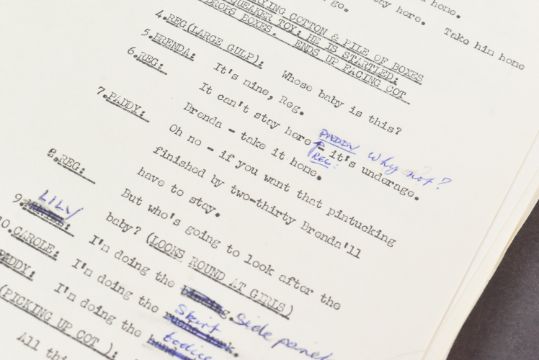 go.
stay here.
home.
Take him home
YING COTTON & PILE OF BOXES
SQUEAKER TOY: HE IS STARTLED:
DROPS BOXES. ENDS UP FACING COT
4.REG(LARGE GULP): Whose baby is this?
5.BRENDA: It's nine, Reg.
6.REG: It can't stay here - it's underage.
PADDY Why not?
REG:
7.PADDY: Brenda - take it home.
Oh no - if you want that pintucking
finished by two-thirty Brenda'll
have to stay.
8.REG: But who's going to look after the
baby? (LOOKS ROUND AT GIRLS)
9. LILY I'm doing the Side panel
10.CAROLE: I'm doing the Skirt
PADDY: I'm doing the bodice
(PICKING UP COT ):
All thi